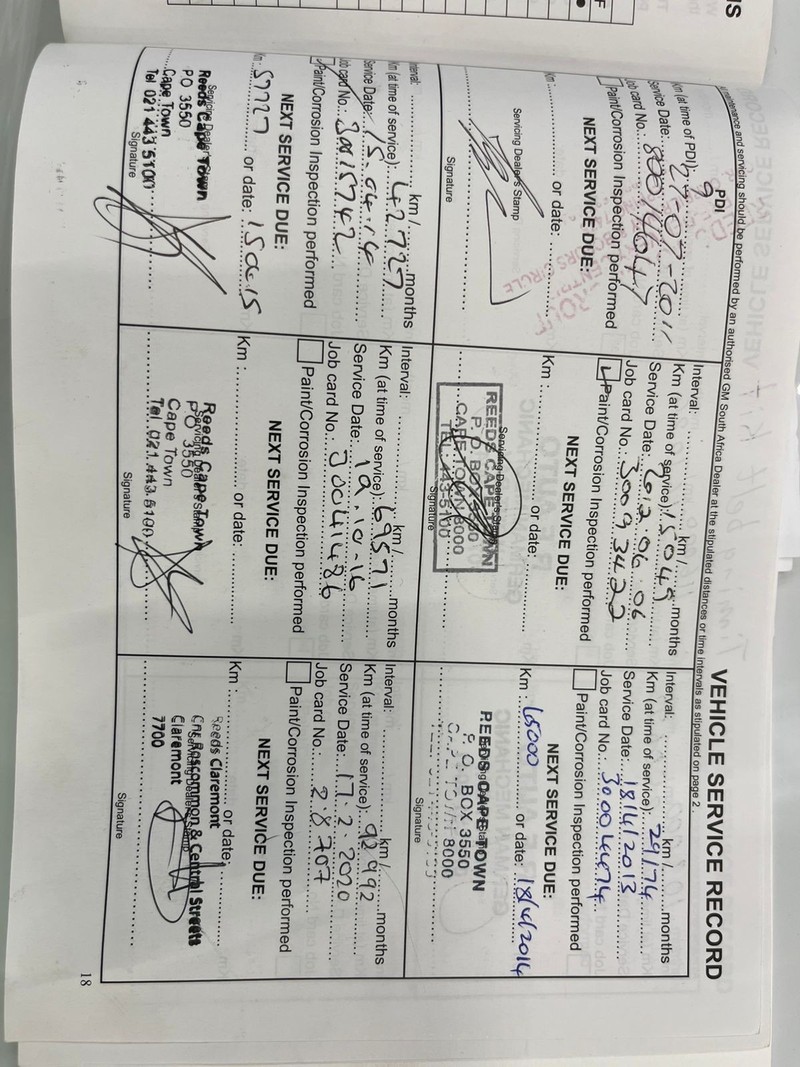 VEHICLE SERVICE RECORD
maintenance and servicing should be performed by an authorised GM South Africa Dealer at the stipulated distances or time intervals as stipulated on page 2.
PDI
Km (at time of PDI): 9
Service Date: 27-07-2011
Job card No.:
Paint/Corrosion Inspection performed
NEXT SERVICE DUE:
Km: or date:
Servicing Dealer's Stamp
Signature
Interval: km/ months
Km (at time of service): 15045
Service Date: 2012.06.06
Job card No.: 30093422
Paint/Corrosion Inspection performed
NEXT SERVICE DUE:
Km: or date:
Servicing Dealer's Stamp
REEDS CAPE TOWN
P. O. BOX 3550
CAPE TOWN 8000
TEL: 443-5100
Signature
Interval: km/ months
Km (at time of service): 29174
Service Date: 18/4/2013
Job card No.: 30004474
Paint/Corrosion Inspection performed
NEXT SERVICE DUE:
Km: 45000 or date: 18/4/2014
REEDS CAPE TOWN
P. O. BOX 3550
CAPE TOWN 8000
Signature
Interval: km/ months
Km (at time of service): 42727
Service Date: 15.04.14
Job card No.: 30015742
Paint/Corrosion Inspection performed
NEXT SERVICE DUE:
Km: 57727 or date: 150415
Servicing Dealer's
Reeds Cape Town
PO 3550
Cape Town
Tel 021 443 5100
Signature
Interval: km/ months
Km (at time of service): 69571
Service Date: 19.10-16
Job card No.: 30041486
Paint/Corrosion Inspection performed
NEXT SERVICE DUE:
Km: or date:
Reeds Cape Town
Servicing Dealer's Stamp
PO 3550
Cape Town
Tel 021 443 5100
Signature
Interval: km/ months
Km (at time of service): 92992
Service Date: 17.2.2020
Job card No.: 28707
Paint/Corrosion Inspection performed
NEXT SERVICE DUE:
Km: or date:
Reeds Claremont
Cnr Roscommon & Central Streets
Servicing Dealer's
Claremont
7700
Signature
18